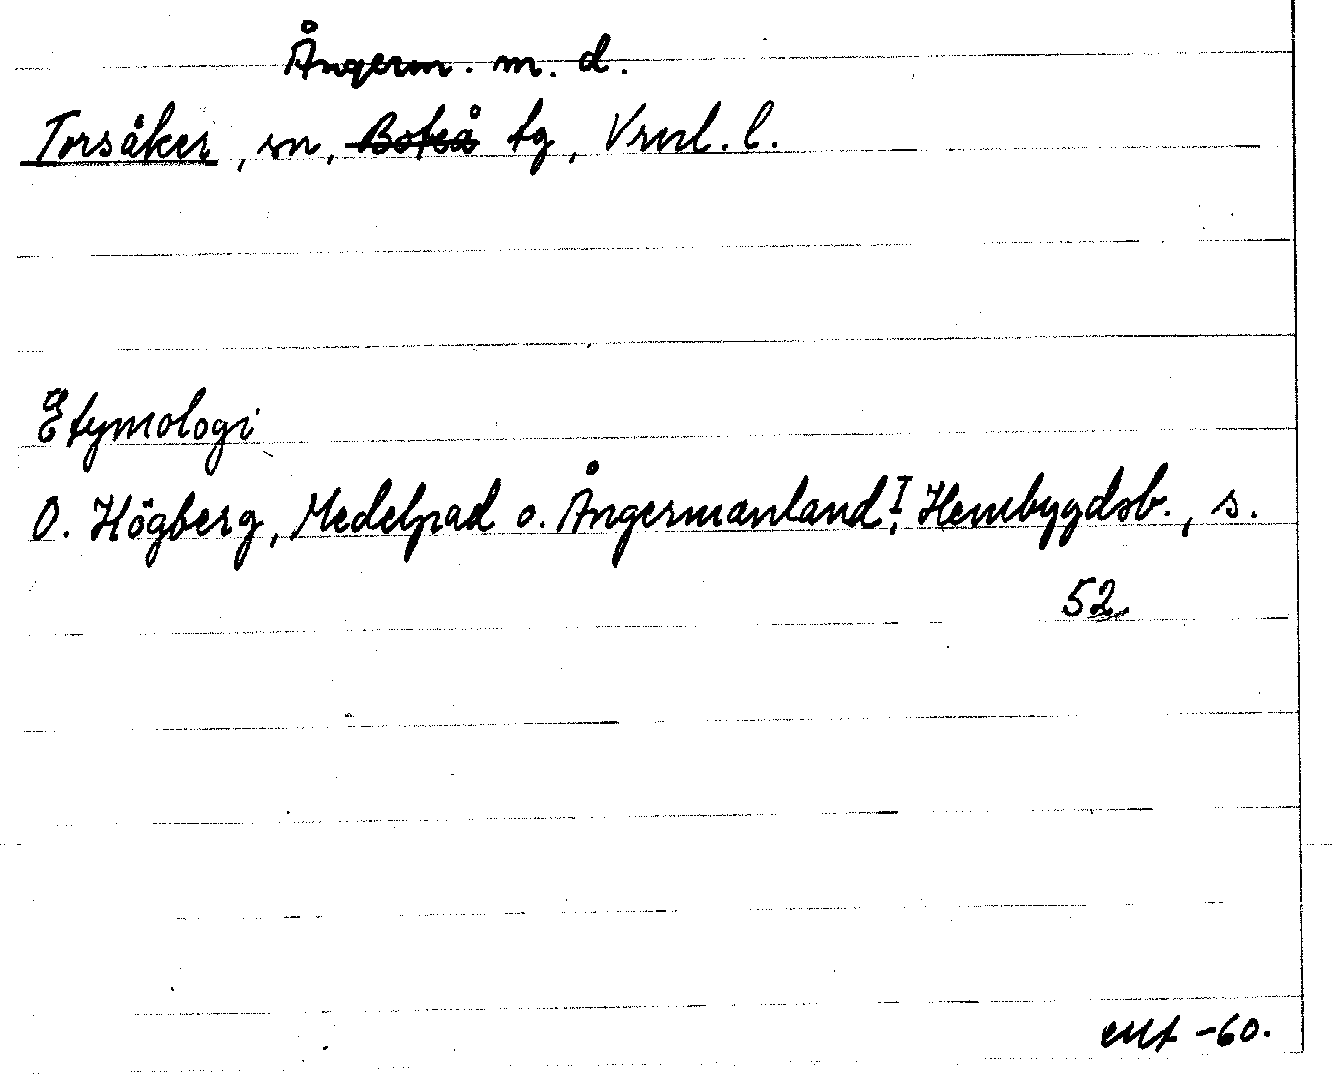 Ångerm. m. d.
Torsåker, sn, Boteå tg, Vrnl. l.
Etymologi
O. Högberg, Medelpad o. Ångermanland I, Hembygdsb., s.
52.
-60.